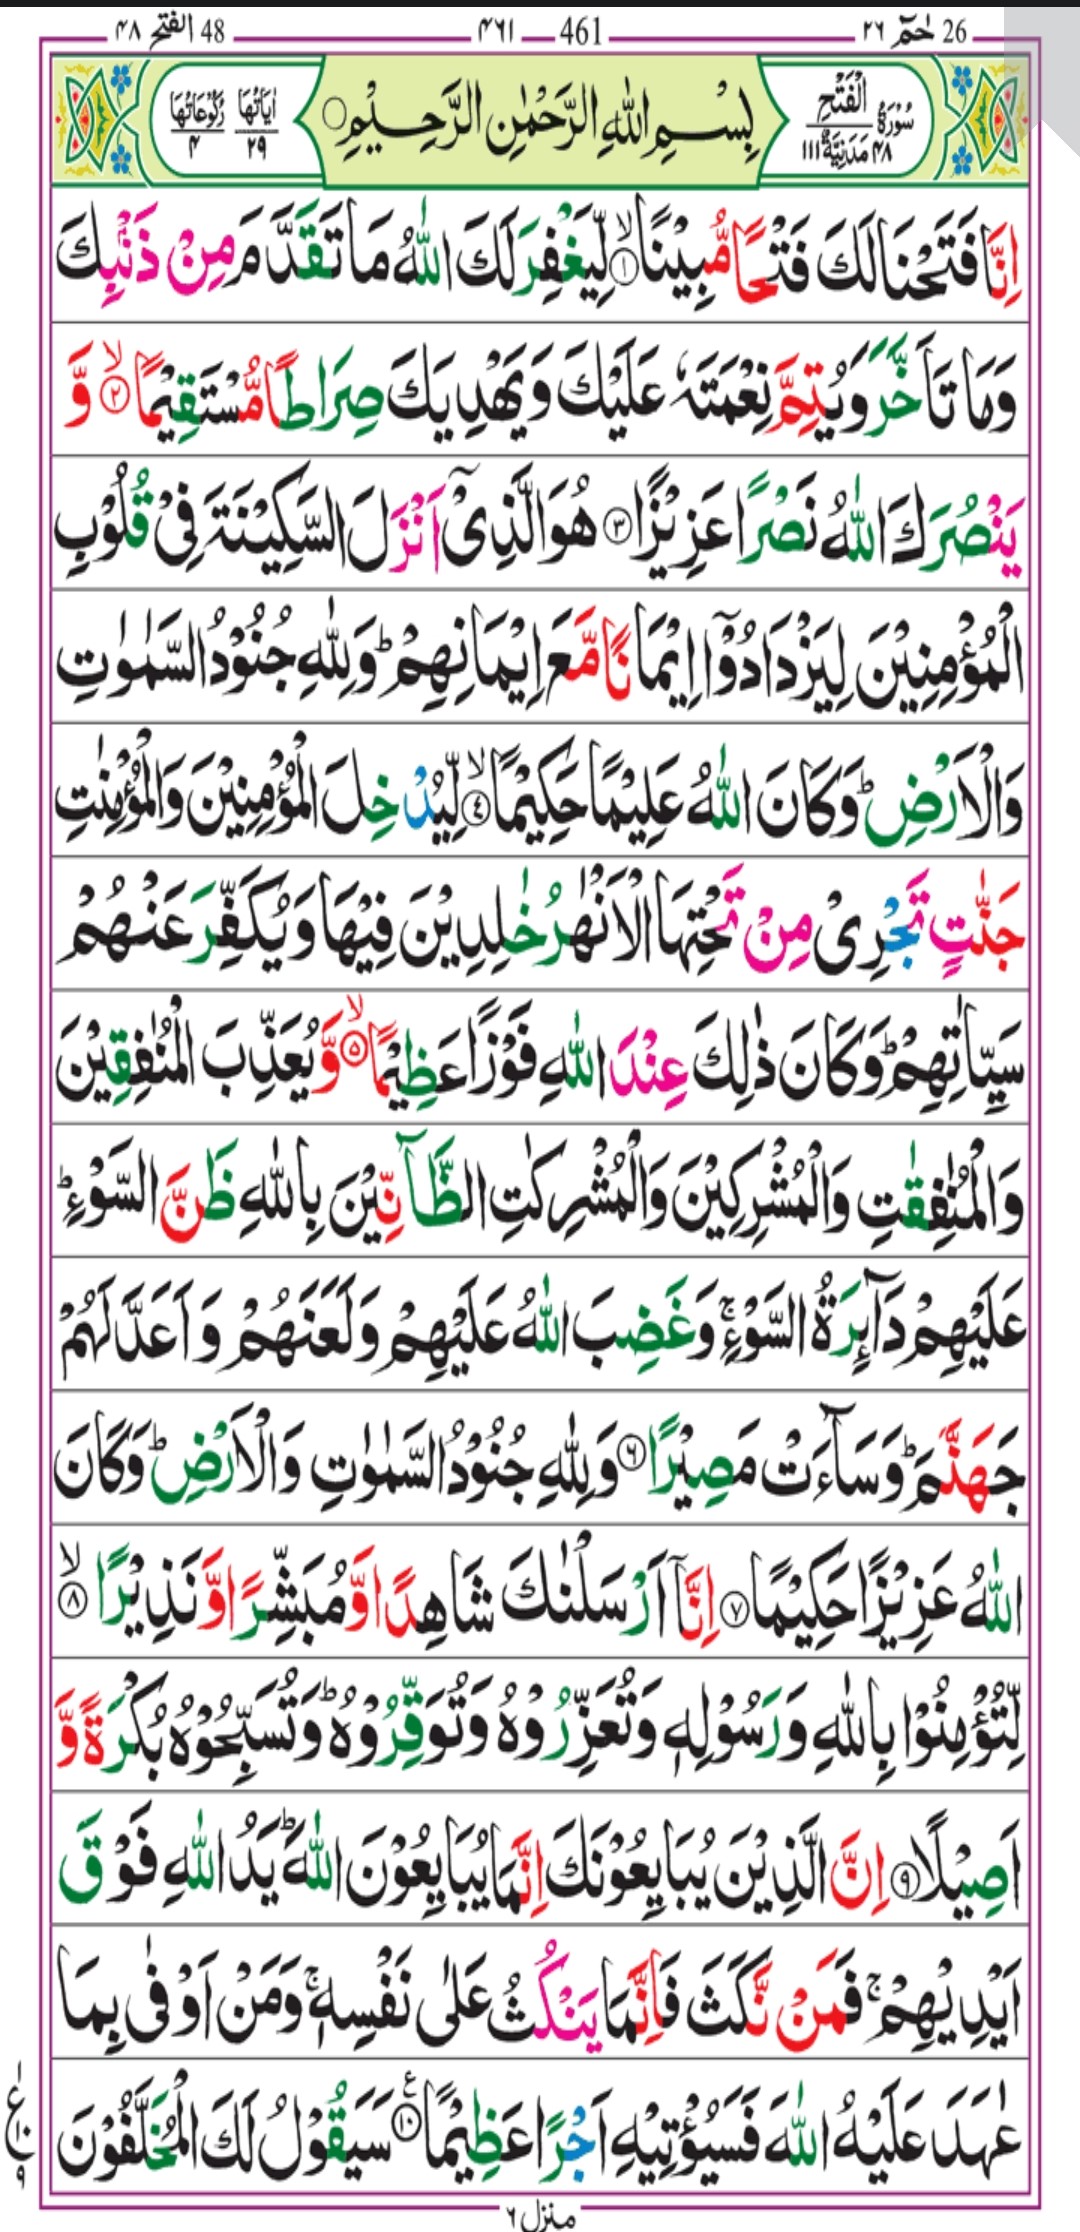 48 الفتح ۴۸ 461 ۴۶۱ 26 حٰمٓ ۲۶
سُوْرَةُ الْفَتْحِ ۴۸ مَدَنِيَّةٌ ۱۱۱ بِسْمِ اللّٰهِ الرَّحْمٰنِ الرَّحِيْمِ اٰيَاتُهَا ۲۹ رُكُوْعَاتُهَا ۴
اِنَّا فَتَحْنَا لَكَ فَتْحًا مُّبِيْنًا ۙ‏﴿۱﴾ لِّيَغْفِرَ لَكَ اللّٰهُ مَا تَقَدَّمَ مِنْ ذَنْۢبِكَ
وَمَا تَاَخَّرَ وَيُتِمَّ نِعْمَتَهٗ عَلَيْكَ وَيَهْدِيَكَ صِرَاطًا مُّسْتَقِيْمًا ۙ‏﴿۲﴾ وَّ
يَنْصُرَكَ اللّٰهُ نَصْرًا عَزِيْزًا ﴿۳﴾ هُوَ الَّذِىْۤ اَنْزَلَ السَّكِيْنَةَ فِىْ قُلُوْبِ
الْمُؤْمِنِيْنَ لِيَزْدَادُوْۤا اِيْمَانًا مَّعَ اِيْمَانِهِمْ ؕ وَلِلّٰهِ جُنُوْدُ السَّمٰوٰتِ
وَالْاَرْضِ ؕ وَكَانَ اللّٰهُ عَلِيْمًا حَكِيْمًا ۙ‏﴿۴﴾ لِّيُدْخِلَ الْمُؤْمِنِيْنَ وَالْمُؤْمِنٰتِ
جَنّٰتٍ تَجْرِىْ مِنْ تَحْتِهَا الْاَنْهٰرُ خٰلِدِيْنَ فِيْهَا وَيُكَفِّرَ عَنْهُمْ
سَيِّاٰتِهِمْ ؕ وَكَانَ ذٰلِكَ عِنْدَ اللّٰهِ فَوْزًا عَظِيْمًا ۙ‏﴿۵﴾ وَّيُعَذِّبَ الْمُنٰفِقِيْنَ
وَالْمُنٰفِقٰتِ وَالْمُشْرِكِيْنَ وَالْمُشْرِكٰتِ الظَّآنِّيْنَ بِاللّٰهِ ظَنَّ السَّوْءِ ؕ
عَلَيْهِمْ دَآئِرَةُ السَّوْءِ ۚ وَغَضِبَ اللّٰهُ عَلَيْهِمْ وَلَعَنَهُمْ وَاَعَدَّ لَهُمْ
جَهَنَّمَ ؕ وَسَآءَتْ مَصِيْرًا ﴿۶﴾ وَلِلّٰهِ جُنُوْدُ السَّمٰوٰتِ وَالْاَرْضِ ؕ وَكَانَ
اللّٰهُ عَزِيْزًا حَكِيْمًا ﴿۷﴾ اِنَّاۤ اَرْسَلْنٰكَ شَاهِدًا وَّمُبَشِّرًا وَّنَذِيْرًا ۙ‏﴿۸﴾
لِّتُؤْمِنُوْا بِاللّٰهِ وَرَسُوْلِهٖ وَتُعَزِّرُوْهُ وَتُوَقِّرُوْهُ ؕ وَتُسَبِّحُوْهُ بُكْرَةً وَّ
اَصِيْلًا ﴿۹﴾ اِنَّ الَّذِيْنَ يُبَايِعُوْنَكَ اِنَّمَا يُبَايِعُوْنَ اللّٰهَ ؕ يَدُ اللّٰهِ فَوْقَ
اَيْدِيْهِمْ ۚ فَمَنْ نَّكَثَ فَاِنَّمَا يَنْكُثُ عَلٰى نَفْسِهٖ ۚ وَمَنْ اَوْفٰى بِمَا
عٰهَدَ عَلَيْهُ اللّٰهَ فَسَيُؤْتِيْهِ اَجْرًا عَظِيْمًا ﴿۱۰﴾ سَيَقُوْلُ لَكَ الْمُخَلَّفُوْنَ
ع ۱۰ ۹
منزل ۶